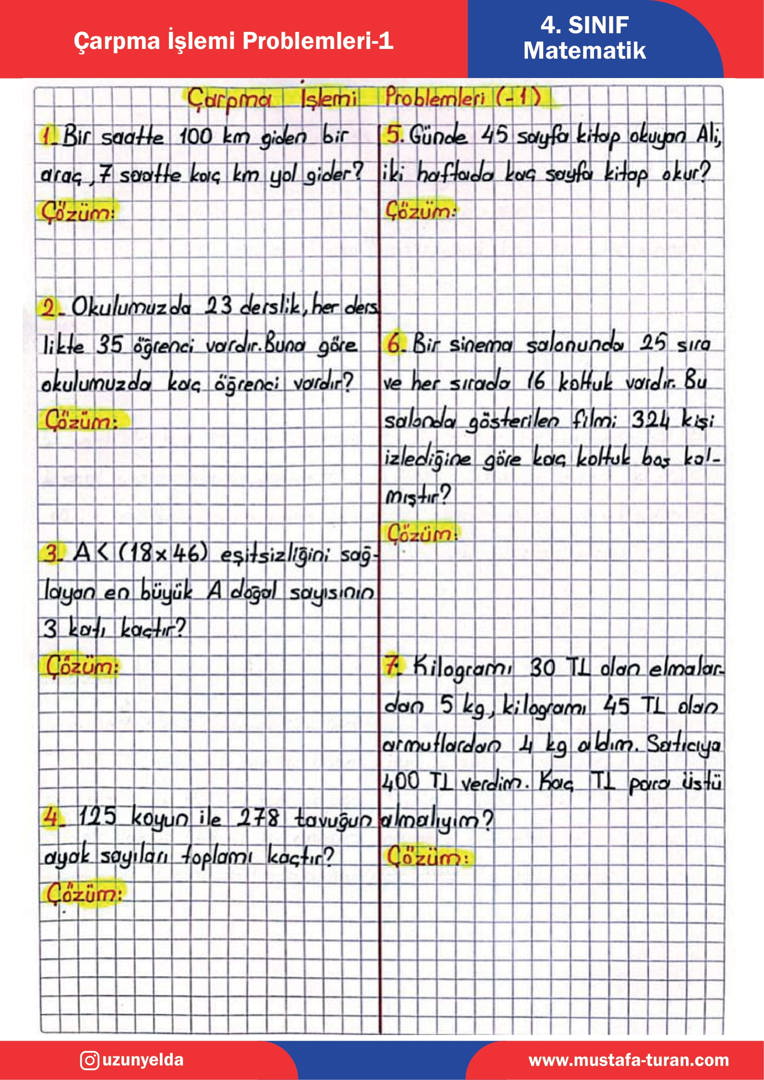 Çarpma İşlemi Problemleri-1
4. SINIF
Matematik
Çarpma İşlemi Problemleri (-1)
1. Bir saatte 100 km giden bir
araç, 7 saatte kaç km yol gider?
Çözüm:
2. Okulumuzda 23 derslik, her ders
likte 35 öğrenci vardır. Buna göre
okulumuzda kaç öğrenci vardır?
Çözüm:
3. A < (18 x 46) eşitsizliğini sağ-
layan en büyük A doğal sayısının
3 katı kaçtır?
Çözüm:
4. 125 koyun ile 278 tavuğun
ayak sayıları toplamı kaçtır?
Çözüm:
5. Günde 45 sayfa kitap okuyan Ali,
iki haftada kaç sayfa kitap okur?
Çözüm:
6. Bir sinema salonunda 25 sıra
ve her sırada 16 koltuk vardır. Bu
salonda gösterilen filmi 324 kişi
izlediğine göre kaç koltuk boş kal-
mıştır?
Çözüm:
7. Kilogramı 30 TL olan elmalar-
dan 5 kg, kilogramı 45 TL olan
armutlardan 4 kg aldım. Satıcıya
400 TL verdim. Kaç TL para üstü
almalıyım?
Çözüm:
uzunyelda
www.mustafa-turan.com